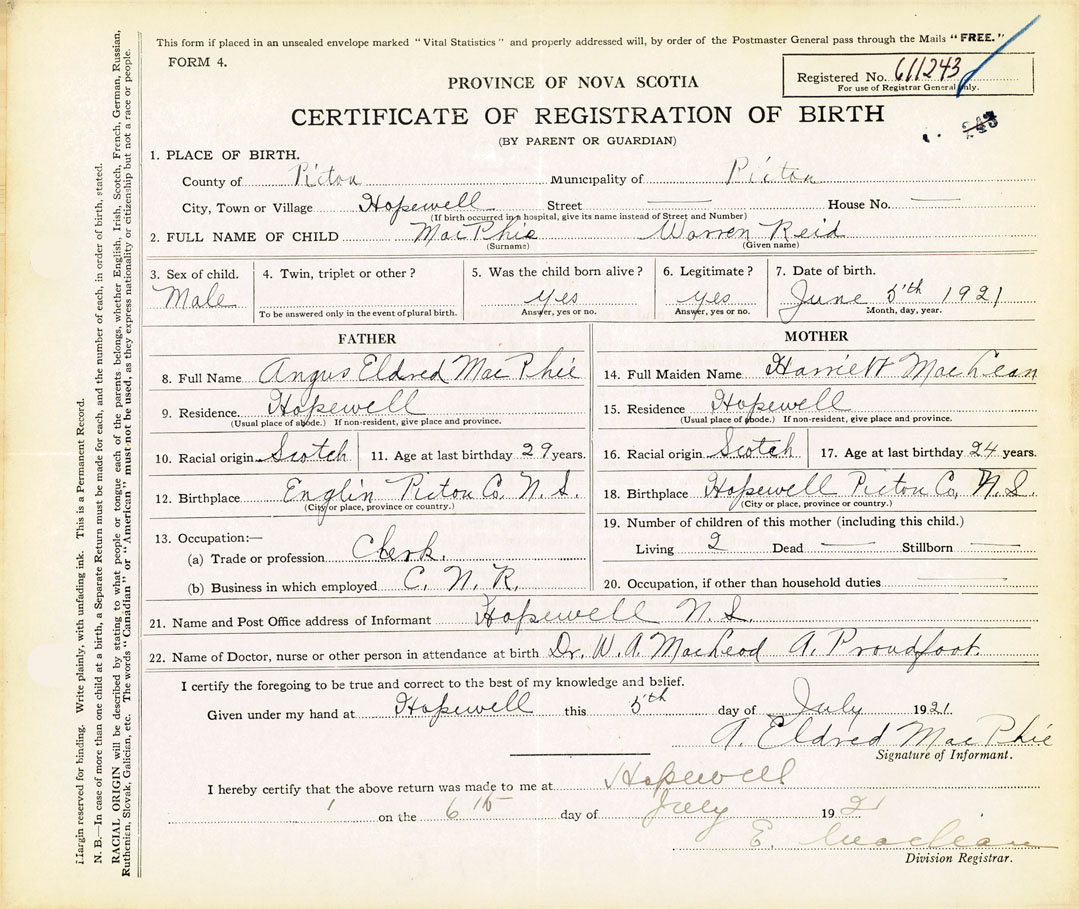 This form if placed in an unsealed envelope marked "Vital Statistics" and properly addressed will, by order of the Postmaster General pass through the Mails "FREE."
FORM 4.
Registered No. 611243
For use of Registrar General only.
PROVINCE OF NOVA SCOTIA
CERTIFICATE OF REGISTRATION OF BIRTH
243
(BY PARENT OR GUARDIAN)
1. PLACE OF BIRTH.
County of Pictou Municipality of Pictou
City, Town or Village Hopewell Street — House No. —
(If birth occurred in a hospital, give its name instead of Street and Number)
2. FULL NAME OF CHILD MacPhie Warren Reid
(Surname) (Given name)
3. Sex of child. 4. Twin, triplet or other? 5. Was the child born alive? 6. Legitimate? 7. Date of birth.
Male yes yes June 5th 1921
To be answered only in the event of plural birth. Answer, yes or no. Answer, yes or no. Month, day, year.
FATHER
8. Full Name Angus Eldred MacPhie
9. Residence. Hopewell
(Usual place of abode.) If non-resident, give place and province.
10. Racial origin Scotch 11. Age at last birthday 29 years.
12. Birthplace Englin Pictou Co. N. S.
(City or place, province or country.)
13. Occupation:—
(a) Trade or profession Clerk.
(b) Business in which employed C. N. R.
MOTHER
14. Full Maiden Name Harriett MacLean
15. Residence Hopewell
(Usual place of abode.) If non-resident, give place and province.
16. Racial origin Scotch 17. Age at last birthday 24 years.
18. Birthplace Hopewell Pictou Co, N. S.
(City or place, province or country.)
19. Number of children of this mother (including this child.)
Living 2 Dead — Stillborn —
20. Occupation, if other than household duties —
21. Name and Post Office address of Informant Hopewell N. S.
22. Name of Doctor, nurse or other person in attendance at birth Dr. W. A. MacLeod A. Proudfoot.
I certify the foregoing to be true and correct to the best of my knowledge and belief.
Given under my hand at Hopewell this 5th day of July 1921.
A. Eldred MacPhie
Signature of Informant.
I hereby certify that the above return was made to me at Hopewell
on the 6th day of July 1921
E. Maclean
Division Registrar.
Margin reserved for binding. Write plainly, with unfading ink. This is a Permanent Record.
N. B.—In case of more than one child at a birth, a Separate Return must be made for each, and the number of each, in order of birth, stated.
RACIAL ORIGIN will be described by stating to what people or tongue each of the parents belongs, whether English, Irish, Scotch, French, German, Russian,
Ruthenian, Slovak, Galician, etc. The words "Canadian" or "American" must not be used, as they express nationality or citizenship but not a race or people.